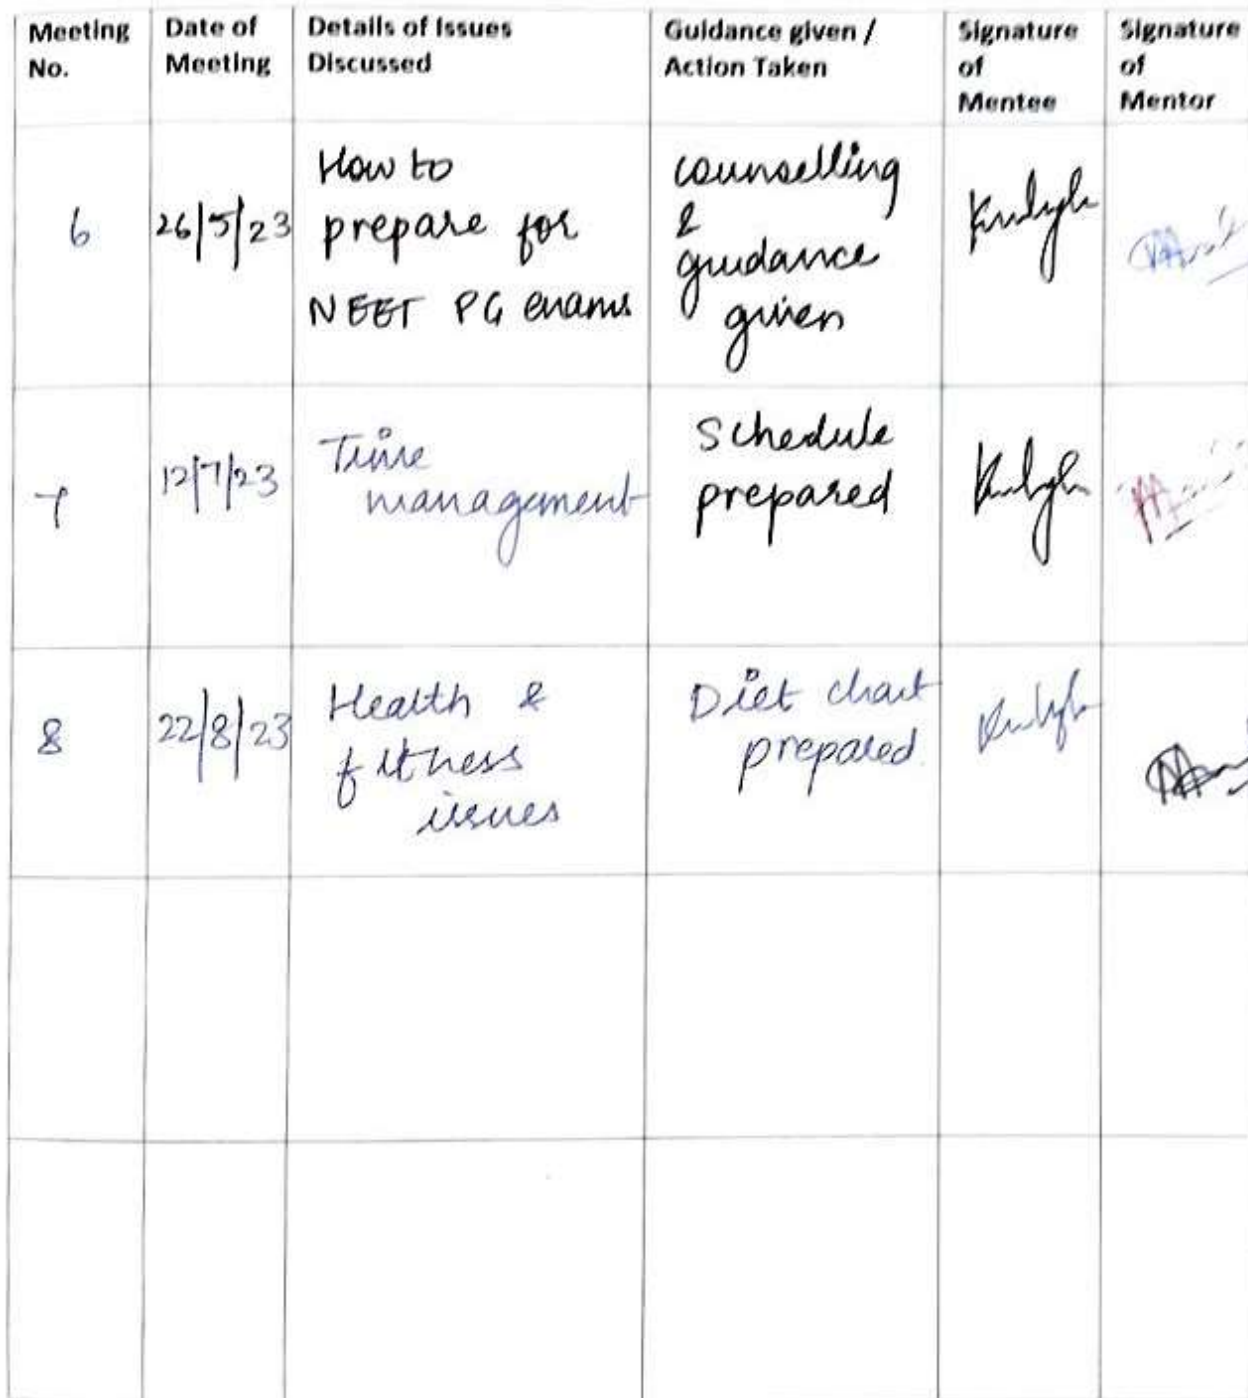 Meeting No.
Date of Meeting
Details of Issues Discussed
Guidance given / Action Taken
Signature of Mentee
Signature of Mentor
6
26/5/23
How to
prepare for
NEET PG exams
counselling
&
guidance
given
7
12/7/23
Time
management
Schedule
prepared
8
22/8/23
Health &
fitness
issues
Diet chart
prepared.